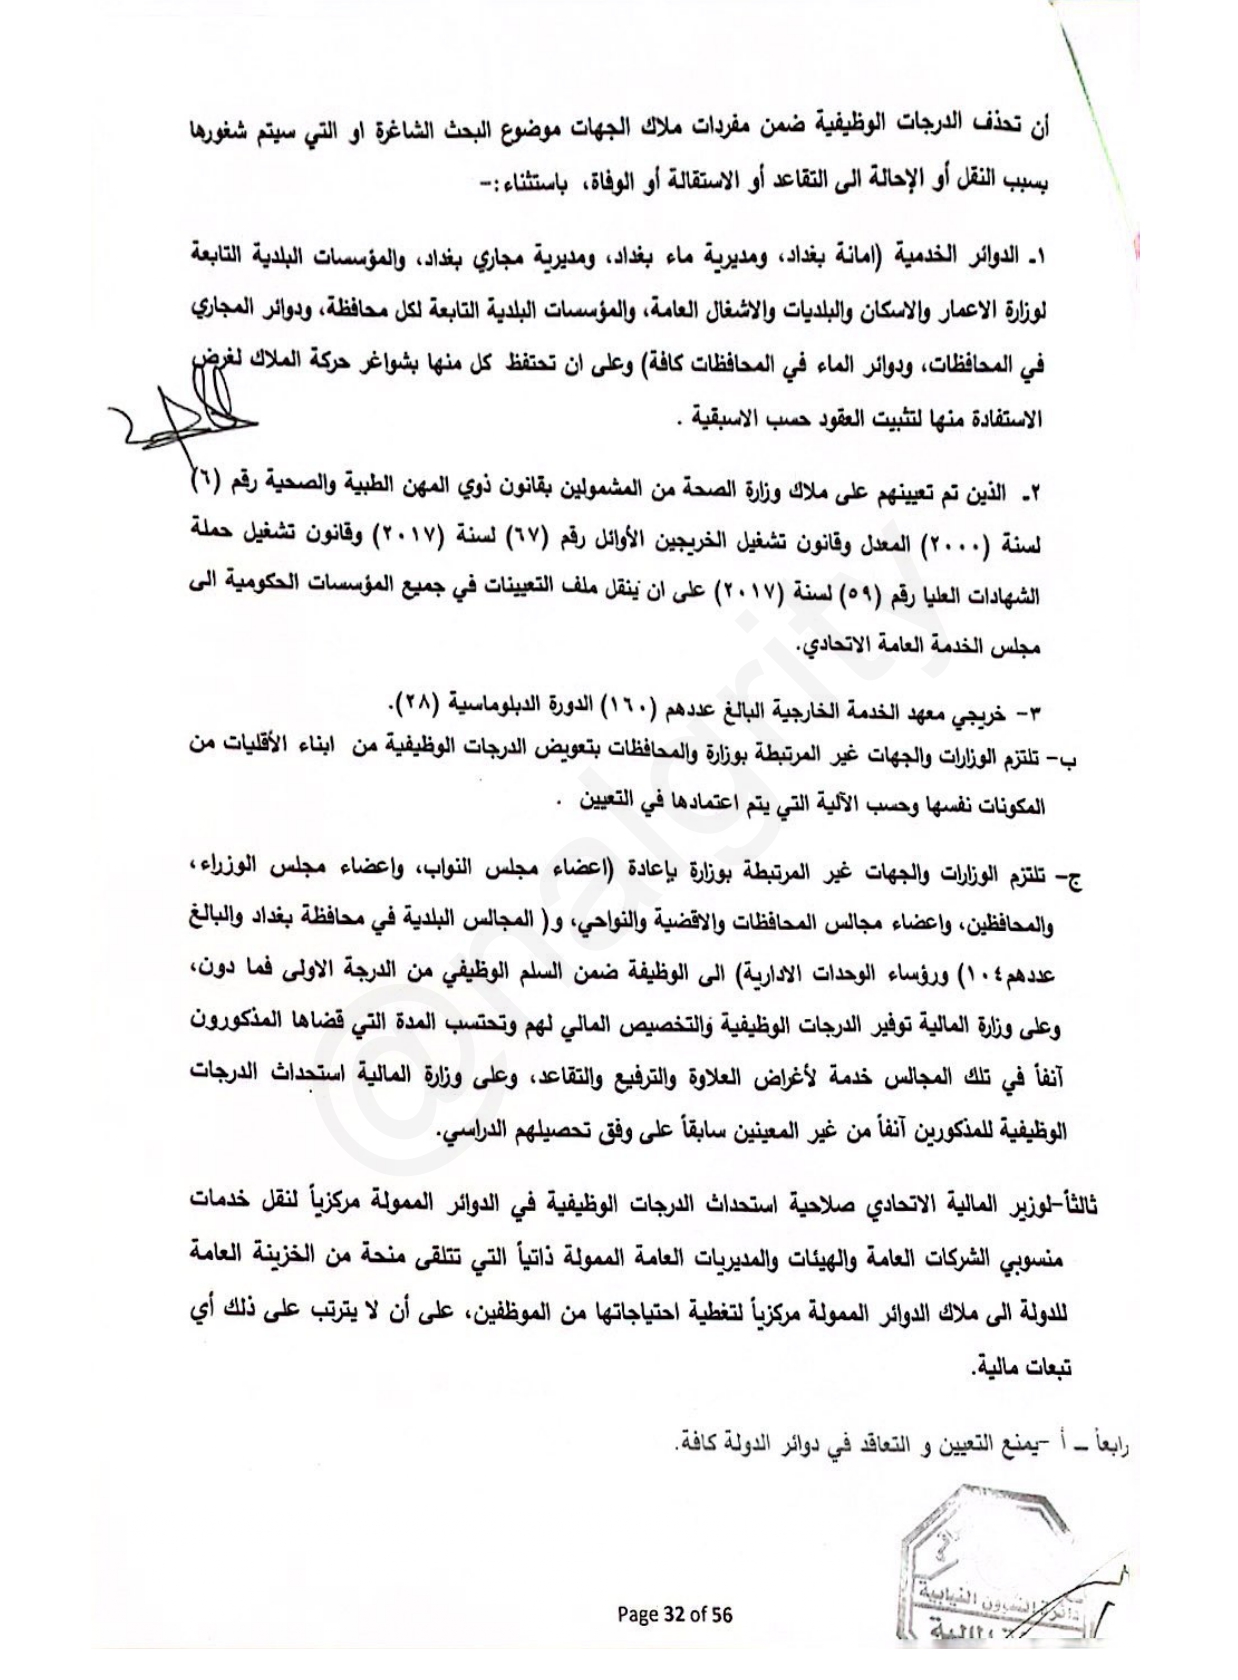 أن تحذف الدرجات الوظيفية ضمن مفردات ملاك الجهات موضوع البحث الشاغرة او التي سيتم شغورها
بسبب النقل أو الإحالة الى التقاعد أو الاستقالة أو الوفاة، باستثناء:-
١ـ الدوائر الخدمية (امانة بغداد، ومديرية ماء بغداد، ومديرية مجاري بغداد، والمؤسسات البلدية التابعة
لوزارة الاعمار والاسكان والبلديات والاشغال العامة، والمؤسسات البلدية التابعة لكل محافظة، ودوائر المجاري
في المحافظات، ودوائر الماء في المحافظات كافة) وعلى ان تحتفظ كل منها بشواغر حركة الملاك لغرض
الاستفادة منها لتثبيت العقود حسب الاسبقية .
٢ـ الذين تم تعيينهم على ملاك وزارة الصحة من المشمولين بقانون ذوي المهن الطبية والصحية رقم (٦)
لسنة (٢٠٠٠) المعدل وقانون تشغيل الخريجين الأوائل رقم (٦٧) لسنة (٢٠١٧) وقانون تشغيل حملة
الشهادات العليا رقم (٥٩) لسنة (٢٠١٧) على ان ينقل ملف التعيينات في جميع المؤسسات الحكومية الى
مجلس الخدمة العامة الاتحادي.
٣- خريجي معهد الخدمة الخارجية البالغ عددهم (١٦٠) الدورة الدبلوماسية (٢٨).
ب- تلتزم الوزارات والجهات غير المرتبطة بوزارة والمحافظات بتعويض الدرجات الوظيفية من ابناء الأقليات من
المكونات نفسها وحسب الآلية التي يتم اعتمادها في التعيين .
ج- تلتزم الوزارات والجهات غير المرتبطة بوزارة بإعادة (اعضاء مجلس النواب، واعضاء مجلس الوزراء،
والمحافظين، واعضاء مجالس المحافظات والاقضية والنواحي، و( المجالس البلدية في محافظة بغداد والبالغ
عددهم١٠٤) ورؤساء الوحدات الادارية) الى الوظيفة ضمن السلم الوظيفي من الدرجة الاولى فما دون،
وعلى وزارة المالية توفير الدرجات الوظيفية والتخصيص المالي لهم وتحتسب المدة التي قضاها المذكورون
آنفاً في تلك المجالس خدمة لأغراض العلاوة والترفيع والتقاعد، وعلى وزارة المالية استحداث الدرجات
الوظيفية للمذكورين آنفاً من غير المعينين سابقاً على وفق تحصيلهم الدراسي.
ثالثاً-لوزير المالية الاتحادي صلاحية استحداث الدرجات الوظيفية في الدوائر الممولة مركزياً لنقل خدمات
منسوبي الشركات العامة والهيئات والمديريات العامة الممولة ذاتياً التي تتلقى منحة من الخزينة العامة
للدولة الى ملاك الدوائر الممولة مركزياً لتغطية احتياجاتها من الموظفين، على أن لا يترتب على ذلك أي
تبعات مالية.
رابعاً ـ أ -يمنع التعيين و التعاقد في دوائر الدولة كافة.
دائرة الشؤون النيابية
Page 32 of 56
@nalgrity